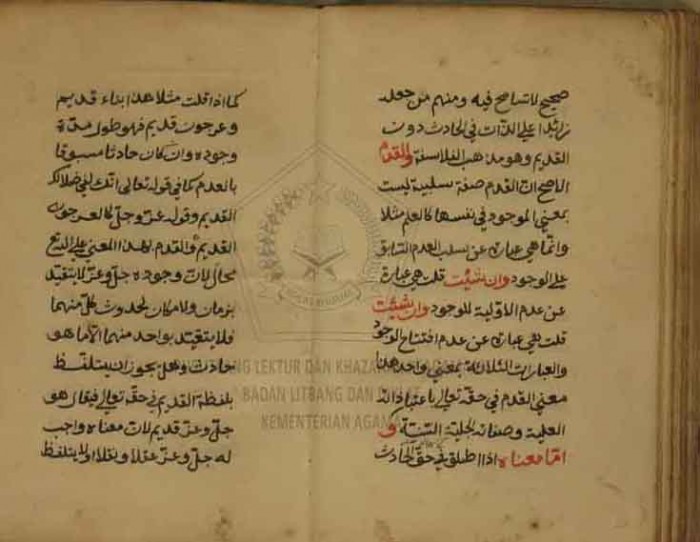 صحيح لا تسامح فيه ومنهم من جعله
زائدا على الذات في الحادث دون
القديم وهو مذهب الفلاسفة والقدم
الاصح ان القدم صفة سلبية ليست
بمعنى الموجود في نفسها كالعلم مثلا
وانما هي عبارة عن سلب العدم السابق
على الوجود وان شئت قلت هي عبارة
عن عدم الاولية للوجود وان شئت
قلت هي عبارة عن عدم افتتاح الوجود
والعبارات الثلاثة بمعنى واحد هذا
معنى القدم في حقه تعالى باعتبار ذاته
العلية وصفاته الجليلة السنية و
اما معناه اذا اطلق في حق الحادث
كما اذا قلت مثلا هذا بناء قديم
وعرجون قديم فهو طول مدة
وجوده وان كان حادثا مسبوقا
بالعدم كما في قوله تعالى انك لفي ضلالك
القديم وقوله عز وجل كالعرجون
القديم والقدم بهذا المعنى على الله تع
محال لان وجوده جل وعز لا يتقيد
بزمان ولا مكان لحدوث كل منهما
فلا يتقيد بواحد منهما الا ما هو
حادث وهل يجوز ان يتلفظ
بلفظة القديم في حقه تعالى فيقال هو
جل وعز قديم لان معناه واجب
له جل وعز عقلا ونقلا او لا يتلفظ
LEKTUR DAN KHAZANAH
BADAN LITBANG DAN DIKLAT
KEMENTERIAN AGAMA